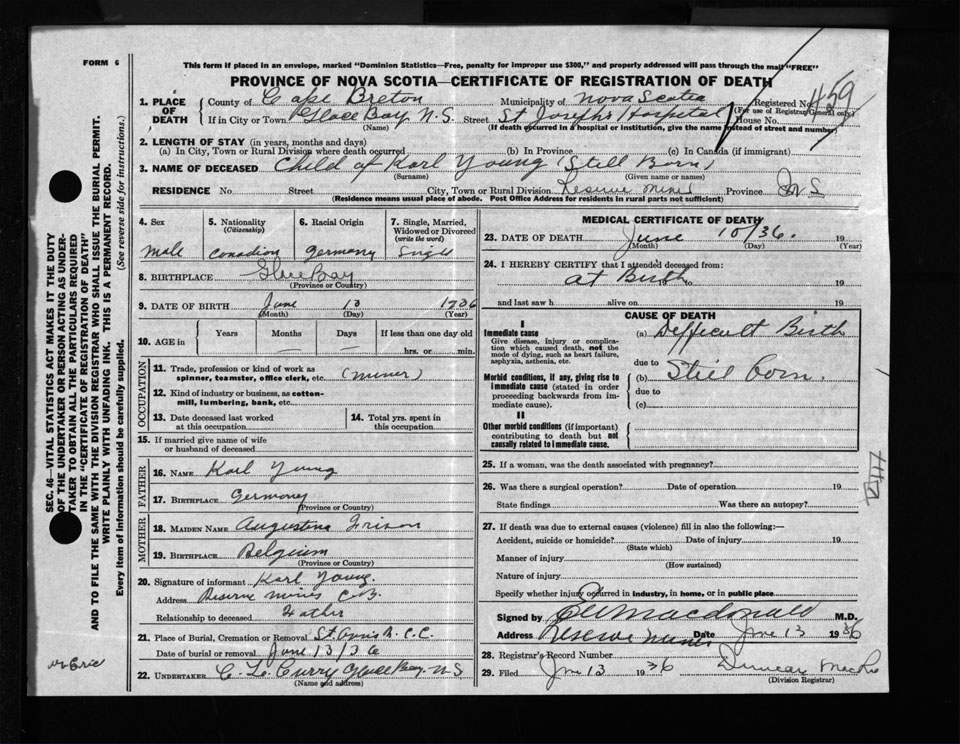 FORM 6
This form if placed in an envelope, marked "Dominion Statistics—Free, penalty for improper use $300," and properly addressed will pass through the mail "FREE"
PROVINCE OF NOVA SCOTIA—CERTIFICATE OF REGISTRATION OF DEATH
1. PLACE OF DEATH
County of Cape Breton Municipality of Nova Scotia Registered No. 459
(For use of Registrar General only)
If in City or Town Glace Bay, N.S. Street St Josephs Hospital House No.
(Name) (If death occurred in a hospital or institution, give the name instead of street and number)
2. LENGTH OF STAY (in years, months and days)
(a) In City, Town or Rural Division where death occurred (b) In Province (c) In Canada (if immigrant)
3. NAME OF DECEASED Child of Karl Young (Still Born)
(Surname) (Given name or names)
RESIDENCE No. Street City, Town or Rural Division Reserve Mines Province N S
(Residence means usual place of abode. Post Office Address for residents in rural parts not sufficient)
4. Sex
male
5. Nationality
(Citizenship)
Canadian
6. Racial Origin
Germany
7. Single, Married, Widowed or Divorced
(write the word)
Single
8. BIRTHPLACE Glace Bay
(Province or Country)
9. DATE OF BIRTH June 13 1936
(Month) (Day) (Year)
10. AGE in
Years Months Days If less than one day old
hrs. or min.
OCCUPATION
11. Trade, profession or kind of work as spinner, teamster, office clerk, etc. (miner)
12. Kind of industry or business, as cotton-mill, lumbering, bank, etc.
13. Date deceased last worked at this occupation
14. Total yrs. spent in this occupation
15. If married give name of wife or husband of deceased
FATHER
16. NAME Karl Young
17. BIRTHPLACE Germany
(Province or Country)
MOTHER
18. MAIDEN NAME Augustina
19. BIRTHPLACE Belgium
(Province or Country)
20. Signature of informant Karl Young.
Address Reserve Mines C.B.
Relationship to deceased Father
21. Place of Burial, Cremation or Removal
Date of burial or removal June 13/36
22. UNDERTAKER C. L. Curry Glace Bay N S
(Name and address)
MEDICAL CERTIFICATE OF DEATH
23. DATE OF DEATH June 10/36. 19
(Month) (Day) (Year)
24. I HEREBY CERTIFY that I attended deceased from:
at Birth 19 to 19
and last saw h alive on 19
CAUSE OF DEATH
I
Immediate cause
Give disease, injury or complication which caused death, not the mode of dying, such as heart failure, asphyxia, asthenia, etc.
(a) Defficult Birth
due to
Morbid conditions, if any, giving rise to immediate cause (stated in order proceeding backwards from immediate cause).
(b) Still born.
due to
(c)
II
Other morbid conditions (if important) contributing to death but not causally related to immediate cause.
25. If a woman, was the death associated with pregnancy?
26. Was there a surgical operation? Date of operation 19
State findings Was there an autopsy?
27. If death was due to external causes (violence) fill in also the following:—
Accident, suicide or homicide? Date of injury 19
(State which)
Manner of injury
(How sustained)
Nature of injury
Specify whether injury occurred in industry, in home, or in public place
Signed by Macdonald M.D.
Address Reserve Mines Date June 13 1936
28. Registrar's Record Number
29. Filed June 13 1936 Duncan
(Division Registrar)
SEC. 46—VITAL STATISTICS ACT MAKES IT THE DUTY
OF THE UNDERTAKER OR PERSON ACTING AS UNDER-
TAKER TO OBTAIN ALL THE PARTICULARS REQUIRED
IN THE "CERTIFICATE OF REGISTRATION OF DEATH"
AND TO FILE THE SAME WITH THE DIVISION REGISTRAR WHO SHALL ISSUE THE BURIAL PERMIT.
WRITE PLAINLY WITH UNFADING INK. THIS IS A PERMANENT RECORD.
Every item of information should be carefully supplied. (See reverse side for instructions.)